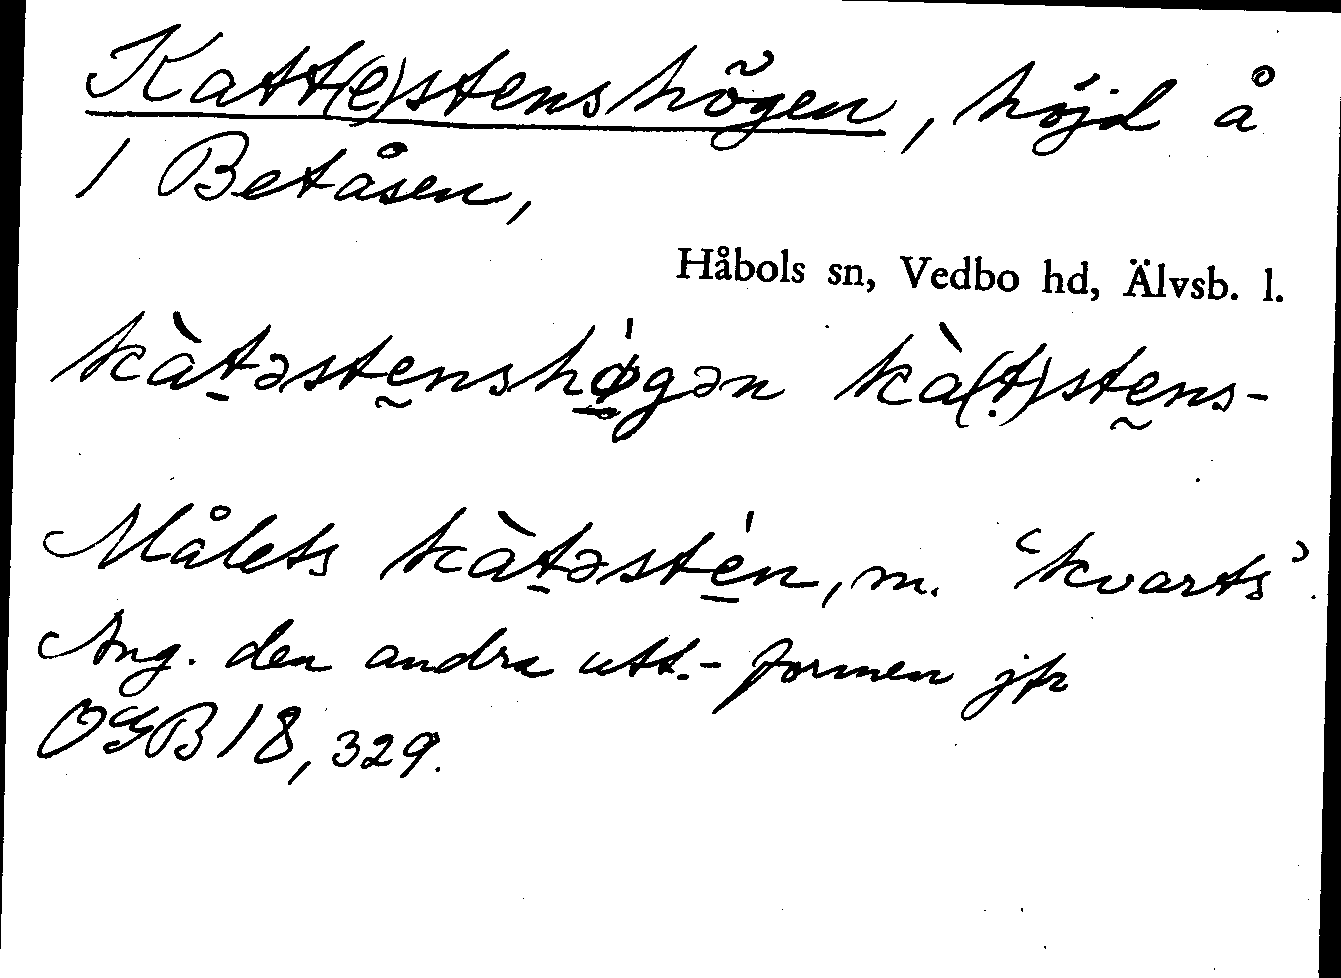 Katt(e)stenshögen, höjd å
1 Betåsen,
Håbols sn, Vedbo hd, Älvsb. l.
kàt̠əstḛnshǿ̠gən kà(ṭ)stḛns-
Målets kàt̠əsté̠n, m. ‘kvarts’.
Ang. den andra utt.-formen jfr
OGB 18, 329.